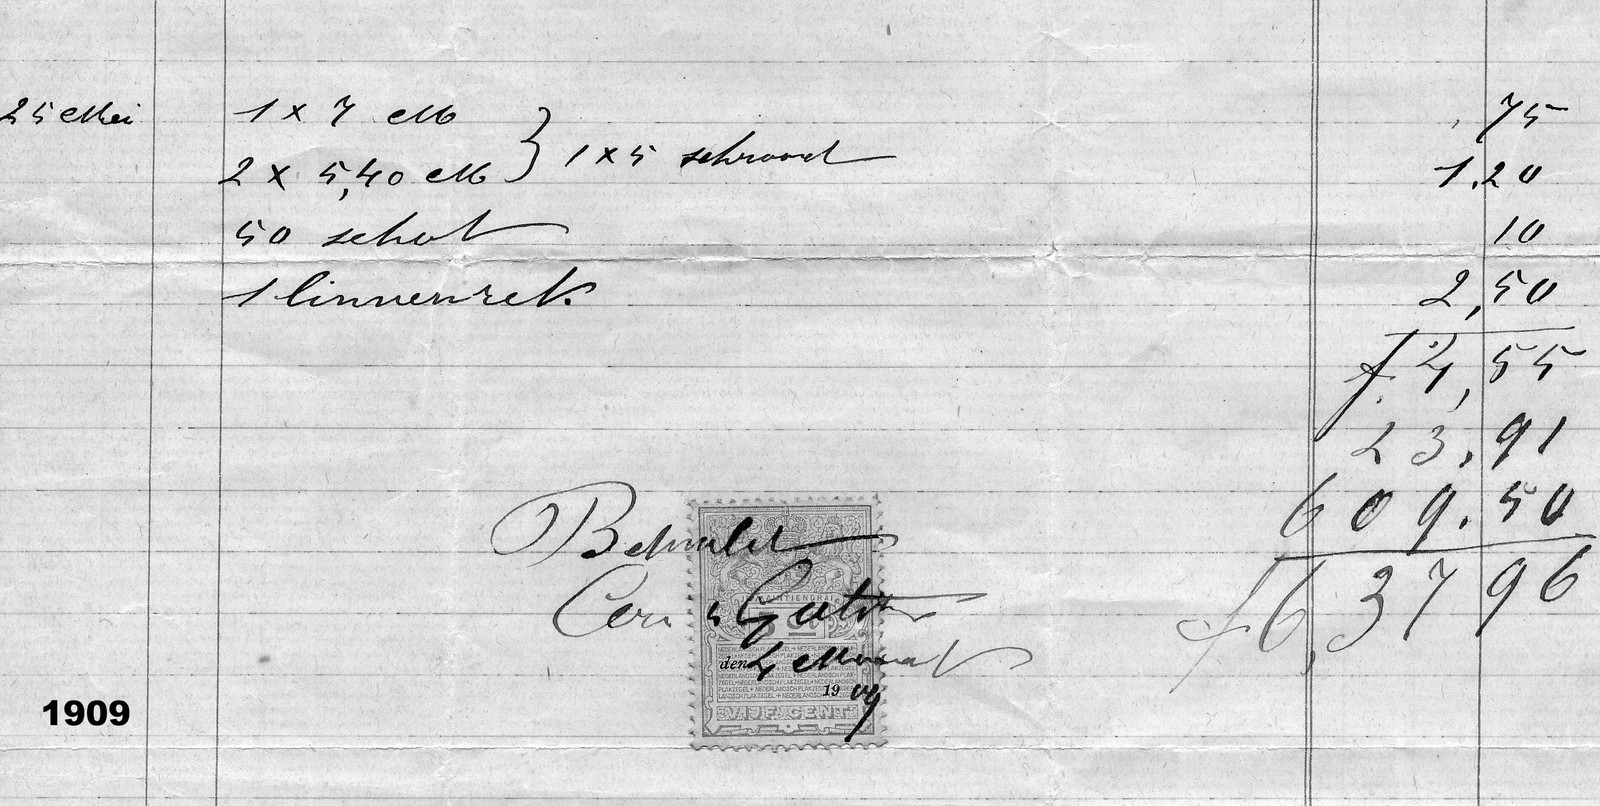 25 Mei 1 x 7 M } ,75
2 x 5,40 M } 1 x 5 schroot 1.20
50 schot 10
1 linnenrek 2,50
f 4,55
23.91
609.50
f 637 96
Betaald
den 4 Maart
NEDERLANDSCH PLAKZEGEL
1909
VIJF CENT
1909